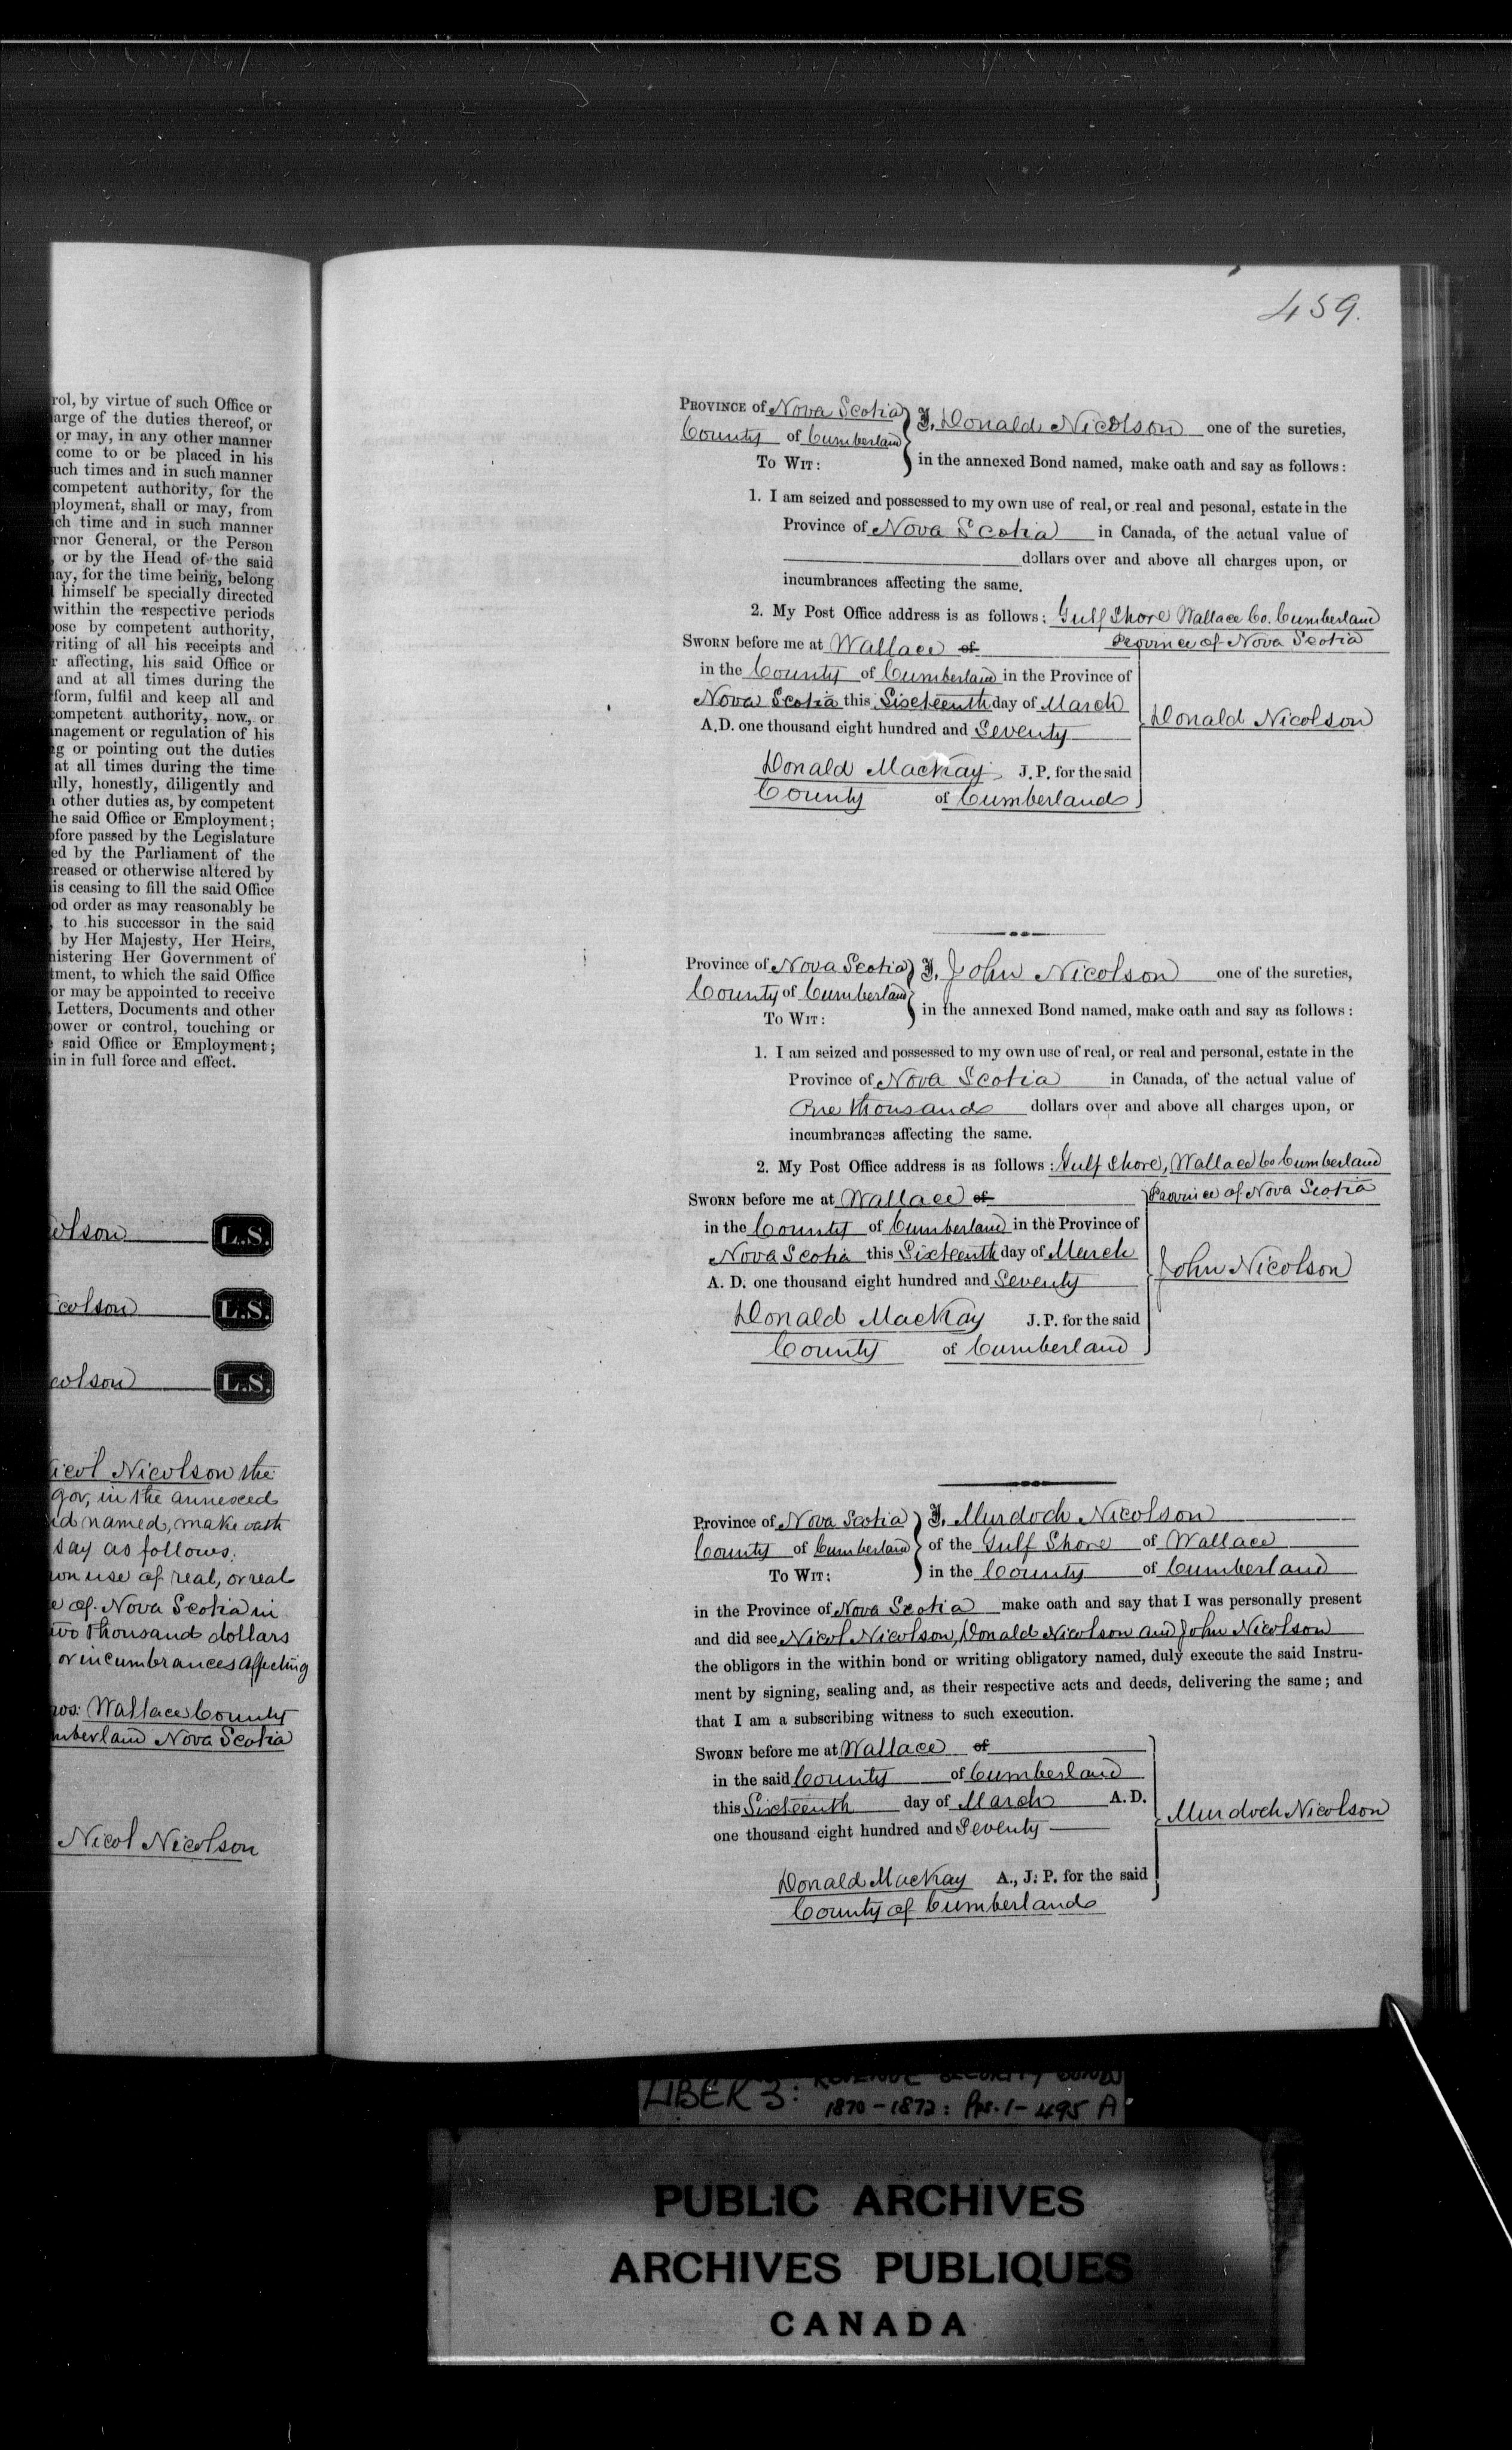 rol, by virtue of such Office or
arge of the duties thereof, or
or may, in any other manner
come to or be placed in his
uch times and in such manner
competent authority, for the
ployment, shall or may, from
ch time and in such manner
rnor General, or the Person
, or by the Head of the said
ay, for the time being, belong
himself be specially directed
within the respective periods
pose by competent authority,
riting of all his receipts and
r affecting, his said Office or
and at all times during the
form, fulfil and keep all and
competent authority, now, or
nagement or regulation of his
g or pointing out the duties
at all times during the time
ully, honestly, diligently and
other duties as, by competent
he said Office or Employment;
ofore passed by the Legislature
ed by the Parliament of the
creased or otherwise altered by
is ceasing to fill the said Office
od order as may reasonably be
, to his successor in the said
by Her Majesty, Her Heirs,
nistering Her Government of
tment, to which the said Office
or may be appointed to receive
Letters, Documents and other
power or control, touching or
said Office or Employment;
in in full force and effect.
olson L.S.
icolson L.S.
colson L.S.
icol Nicolson the
gor, in the annexed
d named, make oath
say as follows.
own use of real, or real
e of Nova Scotia in
wo thousand dollars
or incumbrances affecting
ws: Wallace County
mberland Nova Scotia
Nicol Nicolson
459.
PROVINCE of Nova Scotia } I, Donald Nicolson one of the sureties,
County of Cumberland
TO WIT: in the annexed Bond named, make oath and say as follows:
1. I am seized and possessed to my own use of real, or real and pesonal, estate in the
Province of Nova Scotia in Canada, of the actual value of
dollars over and above all charges upon, or
incumbrances affecting the same.
2. My Post Office address is as follows: Gulf Shore Wallace Co. Cumberland
Province of Nova Scotia
SWORN before me at Wallace of
in the County of Cumberland in the Province of
Nova Scotia this Sixteenth day of March
A.D. one thousand eight hundred and Seventy
Donald Nicolson
Donald MacKay J.P. for the said
County of Cumberland
Province of Nova Scotia } I, John Nicolson one of the sureties,
County of Cumberland
TO WIT: in the annexed Bond named, make oath and say as follows:
1. I am seized and possessed to my own use of real, or real and personal, estate in the
Province of Nova Scotia in Canada, of the actual value of
One thousand dollars over and above all charges upon, or
incumbrances affecting the same.
2. My Post Office address is as follows: Gulf Shore, Wallace Co Cumberland
Province of Nova Scotia
SWORN before me at Wallace of
in the County of Cumberland in the Province of
Nova Scotia this Sixteenth day of March
A. D. one thousand eight hundred and Seventy
John Nicolson
Donald MacKay J.P. for the said
County of Cumberland
Province of Nova Scotia } I, Murdoch Nicolson
County of Cumberland of the Gulf Shore of Wallace
TO WIT: in the County of Cumberland
in the Province of Nova Scotia make oath and say that I was personally present
and did see Nicol Nicolson, Donald Nicolson and John Nicolson
the obligors in the within bond or writing obligatory named, duly execute the said Instru-
ment by signing, sealing and, as their respective acts and deeds, delivering the same; and
that I am a subscribing witness to such execution.
SWORN before me at Wallace of
in the said County of Cumberland
this Sixteenth day of March A.D.
one thousand eight hundred and Seventy
Murdoch Nicolson
Donald MacKay A., J. P. for the said
County of Cumberland
LIBER 3: REVENUE SECURITY BONDS
1870-1872: Pps. 1-495 A
PUBLIC ARCHIVES
ARCHIVES PUBLIQUES
CANADA